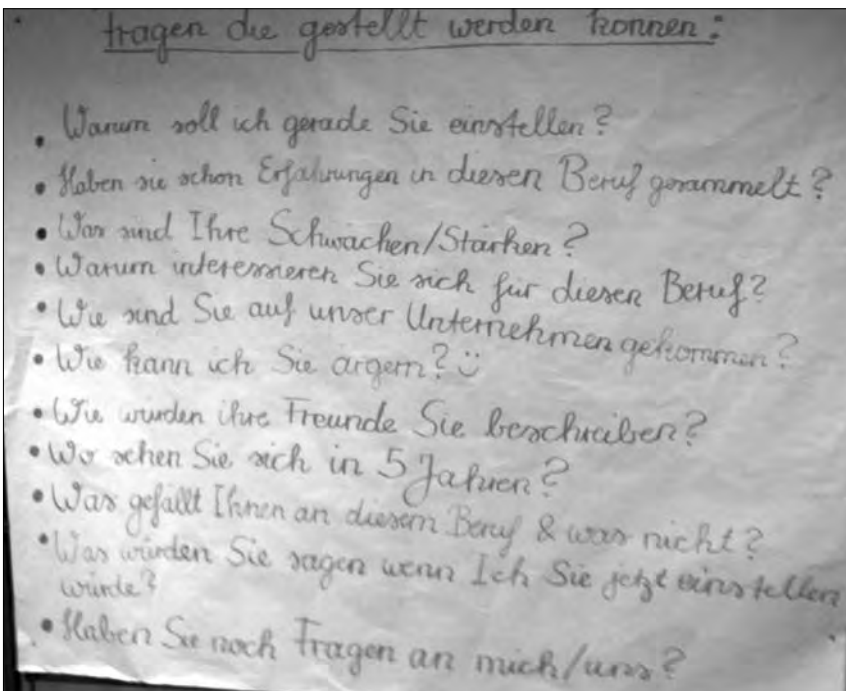 Fragen die gestellt werden können:
• Warum soll ich gerade Sie einstellen?
• Haben sie schon Erfahrungen in diesen Beruf gesammelt?
• Was sind Ihre Schwächen/Stärken?
• Warum interessieren Sie sich für diesen Beruf?
• Wie sind Sie auf unser Unternehmen gekommen?
• Wie kann ich Sie ärgern? ☺
• Wie würden ihre Freunde Sie beschreiben?
• Wo sehen Sie sich in 5 Jahren?
• Was gefällt Ihnen an diesem Beruf & was nicht?
• Was würden Sie sagen wenn Ich Sie jetzt einstellen
würde?
• Haben Sie noch Fragen an mich/uns?